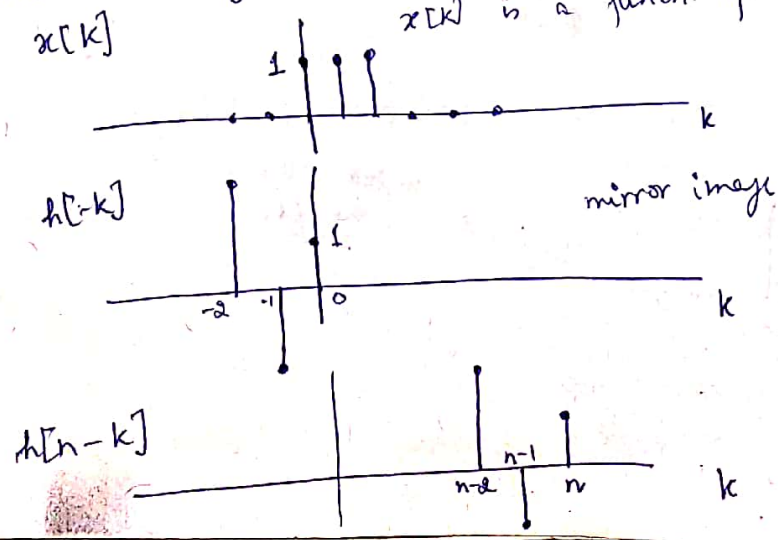 x[k] is a
x[k]
1
k
h[-k]
mirror image
1
-2 -1 0
k
h[n-k]
n-1
n-2 n k